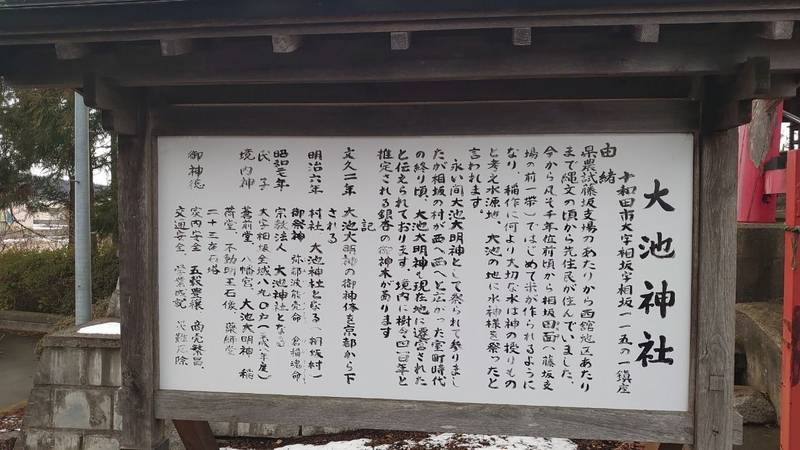 大池神社
十和田市大字相坂字相坂一一五の一鎮座
由緒
県農試藤坂支場のあたりから西舘地区あたり
まで縄文の頃から先住民が住んでいました、
今から凡そ千年位前頃から相坂田面(藤坂支
場の前一帯)ではじめて米が作られるように
なり、稲作に何より大切な水は神の授りもの
と考え水源地、大池の地に水神様を祭ったと
言われます
永い間大池大明神として祭られて参りまし
たが相坂の村が西へ西へと広かった室町時代
の終り頃、大池大明神も現在地に遷宮された
と伝えられております、境内に樹令四〇〇年と
推定される銀杏の御神木があります
記
文久二年 大池大明神の御神体を京都から下
される
明治六年 村社、大池神社となる(相坂村一
御祭神 弥都波能売命 倉稲魂命
昭和七年 宗教法人 大池神社となる
氏子 大字相坂全域八九〇戸
境内神 蒼前堂、八幡宮、大池大明神 稲
荷堂、不動明王石像、薬師堂
二十三夜石塔
御神徳 家内安全 五穀豊穣 商売繁昌
交通安全 営業成就 災難厄除